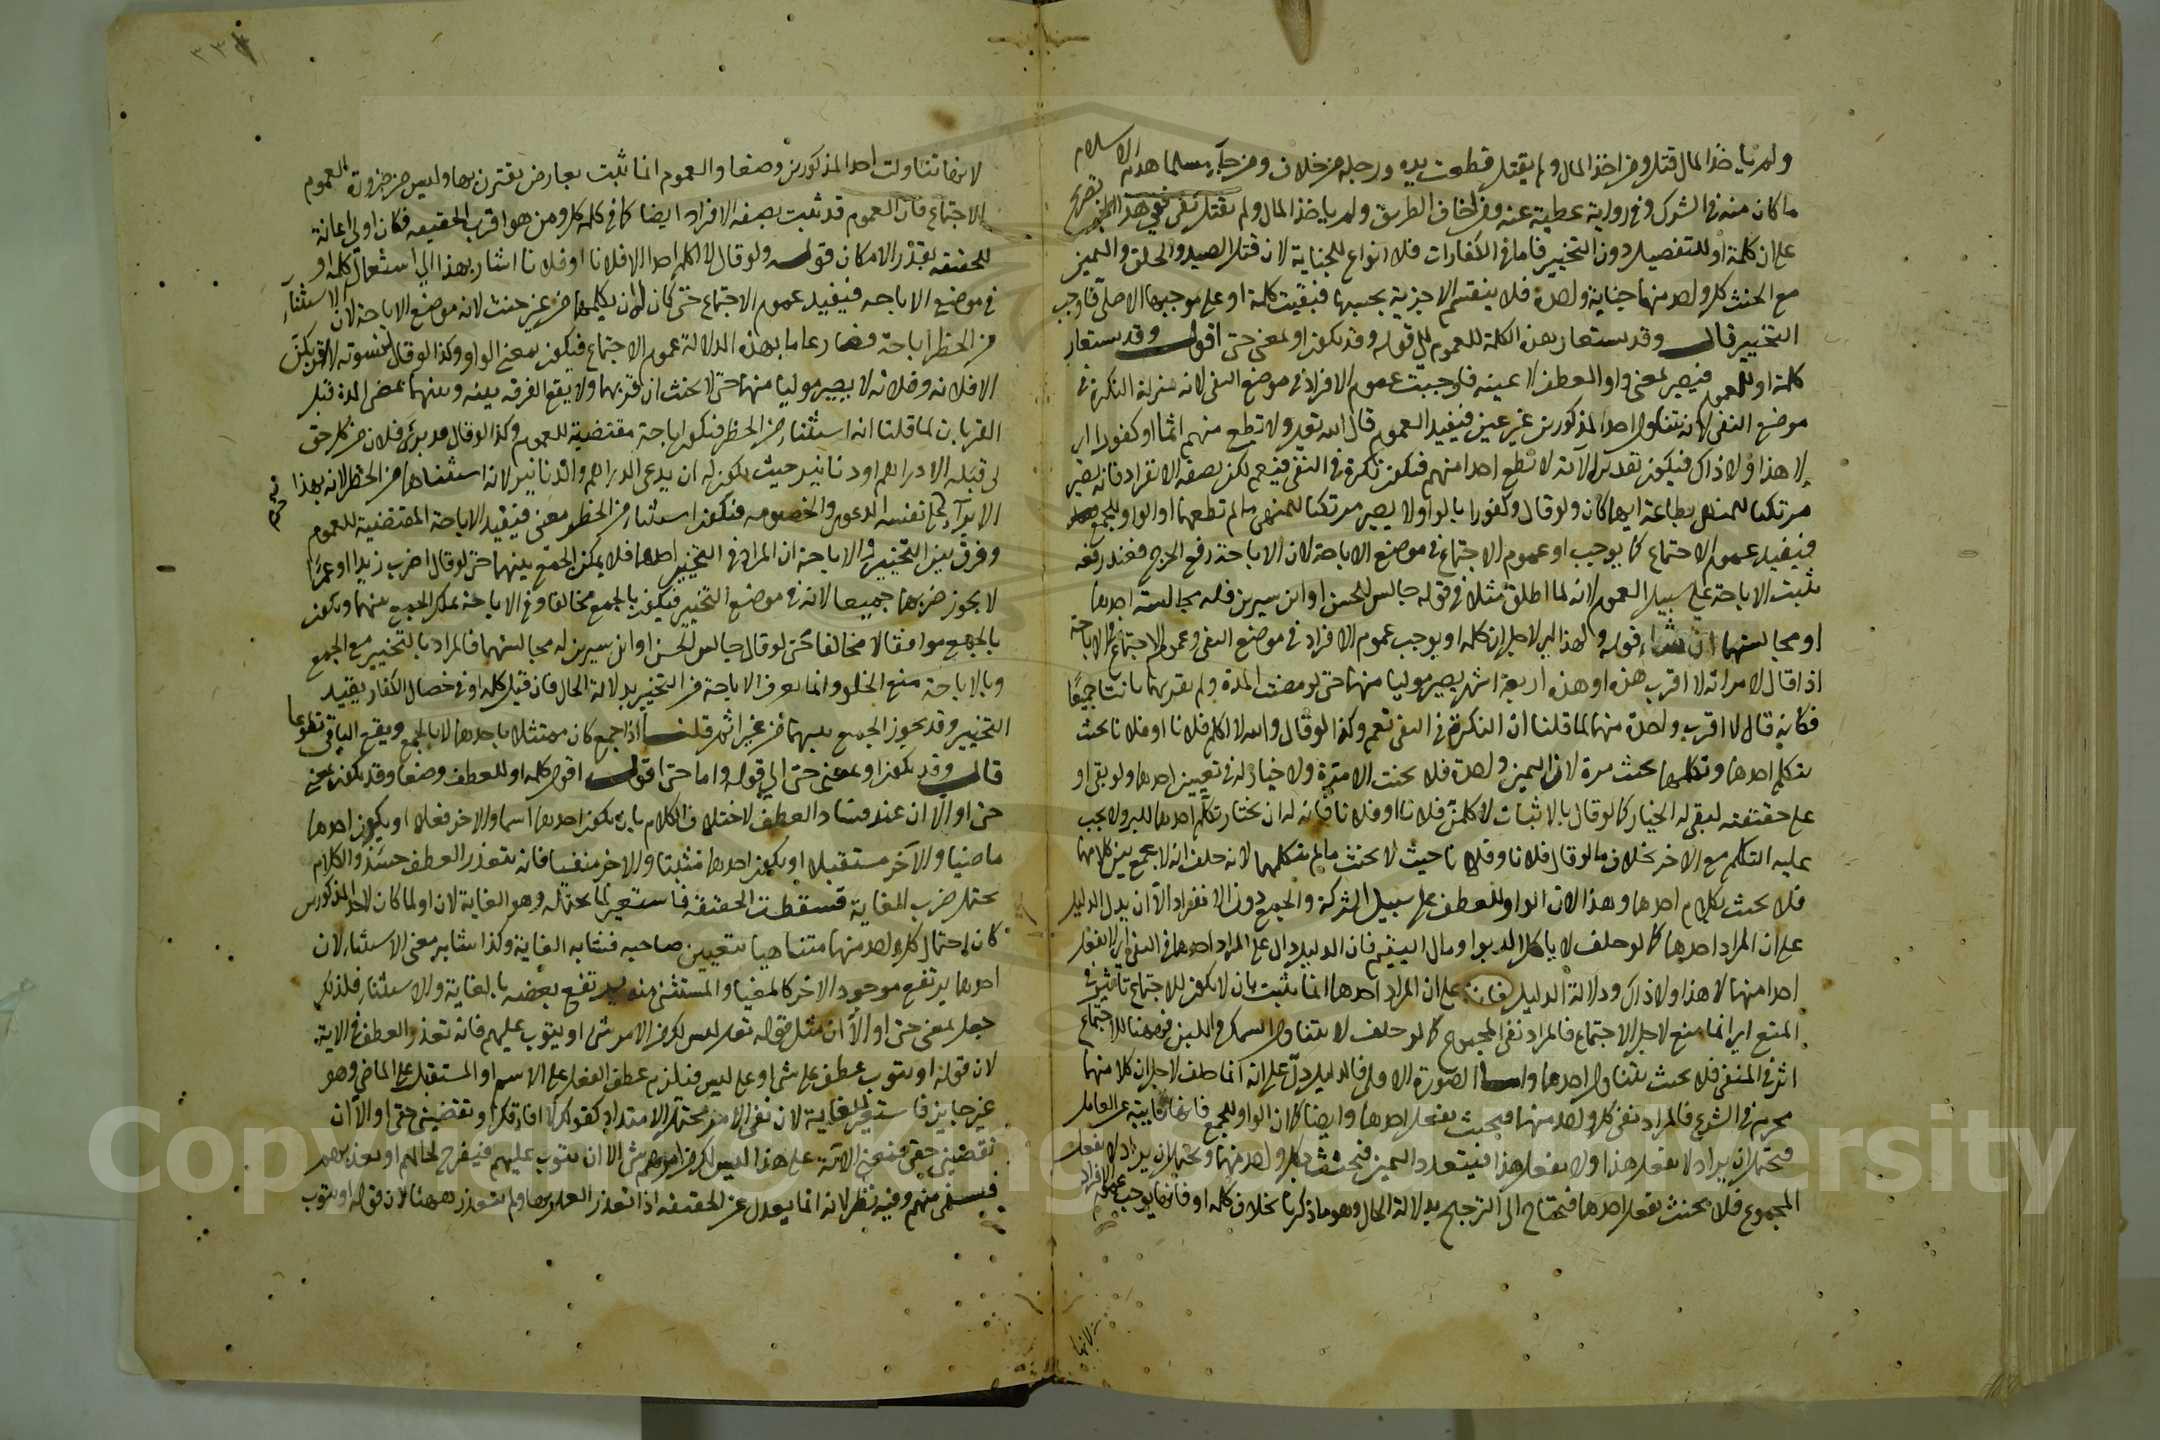 ولم يأخذ المال قتل ومن اخذ المال ولم يقتل قطعت يده ورجله من خلاف ومن جاء مسلما هدم الاسلام
ما كان منه في الشرك وفي رواية عطية عنه ومن اخاف الطريق ولم يأخذ المال ولم يقتل نفي ففي هذا تصريح
على ان كلمة او للتفصيل دون التخيير فاما في الكفارات فلا انواع للجناية لان قتل الصيد والحلق واليمين
مع الحنث كل واحد منها جناية واحدة فلا ينقسم الاجزية بحسبها فبقيت كلمة او على موجبها الاصلي فاوجب
التخيير قال وقد يستعار هذه الكلمة للعموم الى قوله وقد يكون او بمعنى حتى اقول وقد يستعار
كلمة او للعموم فيصير بمعنى واو العطف لا عينه فاوجبت عموم الافراد في موضع النفي لانه بمنزلة النكرة في
موضع النفي لانه يتناول احد المذكورين غير عين فيفيد العموم قال الله تعالى ولا تطع منهم اثما او كفورا اي
لا هذا ولا ذاك فيكون تقدير الآية لا تطع احدا منهم فيكون نكرة في النفي فيعم لكن بصفة الانفراد فانه يصير
مرتكبا للمنهي بطاعة ايهما كان ولو قال وكفورا بالواو لا يصير مرتكبا للمنهي ما لم تطعهما اذ الواو للجمع
فيفيد عموم الاجتماع كما يوجب او عموم الاجتماع في موضع الاباحة لان الاباحة رفع الحرج فعند رفعه
تثبت الاباحة على سبيل العموم لانه لما اطلق مثلا في قوله جالس الحسن او ابن سيرين فله مجالسة احدهما
او مجالستهما ان شاء قوله ولهذا اي لاجل ان كلمة او يوجب عموم الافراد في موضع النفي وعموم الاجتماع في الاباحة
اذا قال لامراته لا اقرب هذه او هذه اربعة اشهر يصير موليا منهما حتى لو مضت المدة ولم يقربها بانتا جميعا
فكأنه قال لا اقرب واحدة منهما لما قلنا ان النكرة في النفي تعم وكذا لو قال والله لا اكلم فلانا او فلانا يحنث
بتكلم احدهما وتكلمهما يحنث مرة لان اليمين واحدة فلا يحنث الا مرة ولا خيار له في تعيين احدهما ولو بقي او
على حقيقته لبقي له الخيار كما لو قال بالاثبات لاكلمن فلانا او فلانا فانه له ان يختار تكلم احدهما للبر ولا يجب
عليه التكلم مع الاخر بخلاف ما لو قال فلانا وفلانا حيث لا يحنث ما لم يتكلمهما لانه حلف انه لا يجمع بين كلامهما
فلا يحنث بكلام احدهما وهذا لان الواو للعطف على سبيل الشركة والجمع دون الانفراد الا ان يدل الدليل
على ان المراد احدهما كما لو حلف لا ياكل الربوا ومال اليتيم فان الدليل دال على المراد احدهما في النفي اي لا يفعل
احدا منهما لا هذا ولا ذاك ودلالة الدليل على ان المراد احدهما انما يثبت بان لا يكون للاجتماع تاثير في
المنع اي انما منع لاجل الاجتماع فالمراد نفي المجموع كما لو حلف لا يتناول السمك واللبن فههنا للاجتماع
اثر في المنفي فلا يحنث بتناول احدهما واما الصورة الاولى فالدليل دل على انه انما حلف لاجل ان كلا منهما
محرم في الشرع فالمراد نفي كل واحد منهما فيحنث بفعل احدهما وايضا لان الواو للجمع فانها نايبة عن العامل
فيحتمل ان يراد لا يفعل هذا ولا يفعل هذا فيتعدد اليمين فيحنث بكل واحد منهما ويحتمل ان يراد لا يفعل
المجموع فلا يحنث بفعل احدهما فيحتاج الى الترجيح بدلالة الحال وهو ما ذكرنا بخلاف كلمة او فانها يوجب عموم الافراد
لانها
لانها تناولت احد المذكورين وضعا والعموم انما ثبت بعارض يقترن بها وليس من ضرورة العموم
الاجتماع فان العموم قد ثبت بصفة الافراد ايضا كما في كلمة كل ومن هو اقرب الحقيقة فكان اولى اعانة
للحقيقة بقدر الامكان قوله ولو قال لا اكلم احدا الا فلانا او فلانا اشار بهذا الى استعمال كلمة او
في موضع الاباحة فيفيد عموم الاجتماع حتى كان له ان يكلمهما من غير حنث لانه موضع الاباحة لان الاستثناء
من الحظر اباحة فصار عاما بهذه الدلالة عموم الاجتماع فيكون بمعنى الواو وكذا لو قال لنسوته لا اقربكن
الا فلانة وفلانة لا يصير موليا منهما حتى لا يحنث ان قربهما ولا يقع الفرقة بينه وبينهما بمضي المدة قبل
القربان لما قلنا انه استثناء من الحظر فيكون اباحة مقتضية للعموم وكذا لو قال قد برئ فلان من كل حق
لي قبله الا دراهم او دنانير حيث يكون له ان يدعي الدراهم والدنانير لانه استثناها من الحظر لانه بهذا
الابراء يحرم نفسه الدعوى والخصومة فيكون استثناء من الحظر معنى فيفيد الاباحة المقتضية للعموم
وفرق بين التخيير والاباحة ان المراد في التخيير احدهما فلا يمكن الجمع بينهما حتى لو قال اضرب زيدا او عمرا
لا يجوز ضربهما جميعا لانه في موضع التخيير فيكون بالجمع مخالفا وفي الاباحة يملك الجمع بينهما ويكون
بالجمع موافقا لا مخالفا حتى لو قال جالس الحسن او ابن سيرين له مجالستهما فالمراد بالتخيير منع الجمع
وبالاباحة منع الخلو وانما يعرف الاباحة من التخيير بدلالة الحال فان قيل كلمة او في خصال الكفار يفيد
التخيير وقد يجوز الجمع بينهما من غير اثم قلنا اذا جمع كان ممتثلا باحدهما لا بالجمع ويقع الباقي تطوعا
قال وقد يكون او بمعنى حتى الى قوله واما حتى اقول كلمة او للعطف وضعا وقد يكون بمعنى
حتى او الا ان عند فساد العطف لاختلاف الكلام بان يكون احدهما اسما والاخر فعلا او يكون احدهما
ماضيا والاخر مستقبلا او يكون احدهما مثبتا والاخر منفيا فانه يتعذر العطف حينئذ والكلام
يحتمل ضرب الغاية فسقطت الحقيقة فاستعير لما يحتمله وهو الغاية لان او لما كان لاحد المذكورين
كان احتمال كل واحد منهما متناهيا بتعيين صاحبه فشابه الغاية وكذا شابه معنى الاستثناء لان
احدهما يرتفع موجود الاخر كالمغيا والمستثنى منه يرتفع بعضه بالغاية والاستثناء فلذلك
جعل بمعنى حتى او الا ان مثل قوله تعالى ليس لك من الامر شيء او يتوب عليهم فانه تعذر العطف في الاية
لان قوله او يتوب عطف على شيء او على ليس فيلزم عطف الفعل على الاسم او المستقبل على الماضي وهو
غير جايز فاستعير للغاية لان نفي الامر يحتمل الامتداد كقولك لا افارقك او تقضيني حتى او الا ان
تقضيني حقي فمعنى الاية على هذا ليس لك من امرهم شيء الا ان يتوب عليهم فيفرح لحالهم او يعذبهم
فيستفى منهم وفيه نظر لانه انما يعدل عن الحقيقة اذا تعذر العمل بها ولم يتعذر ههنا لان قوله او يتوب